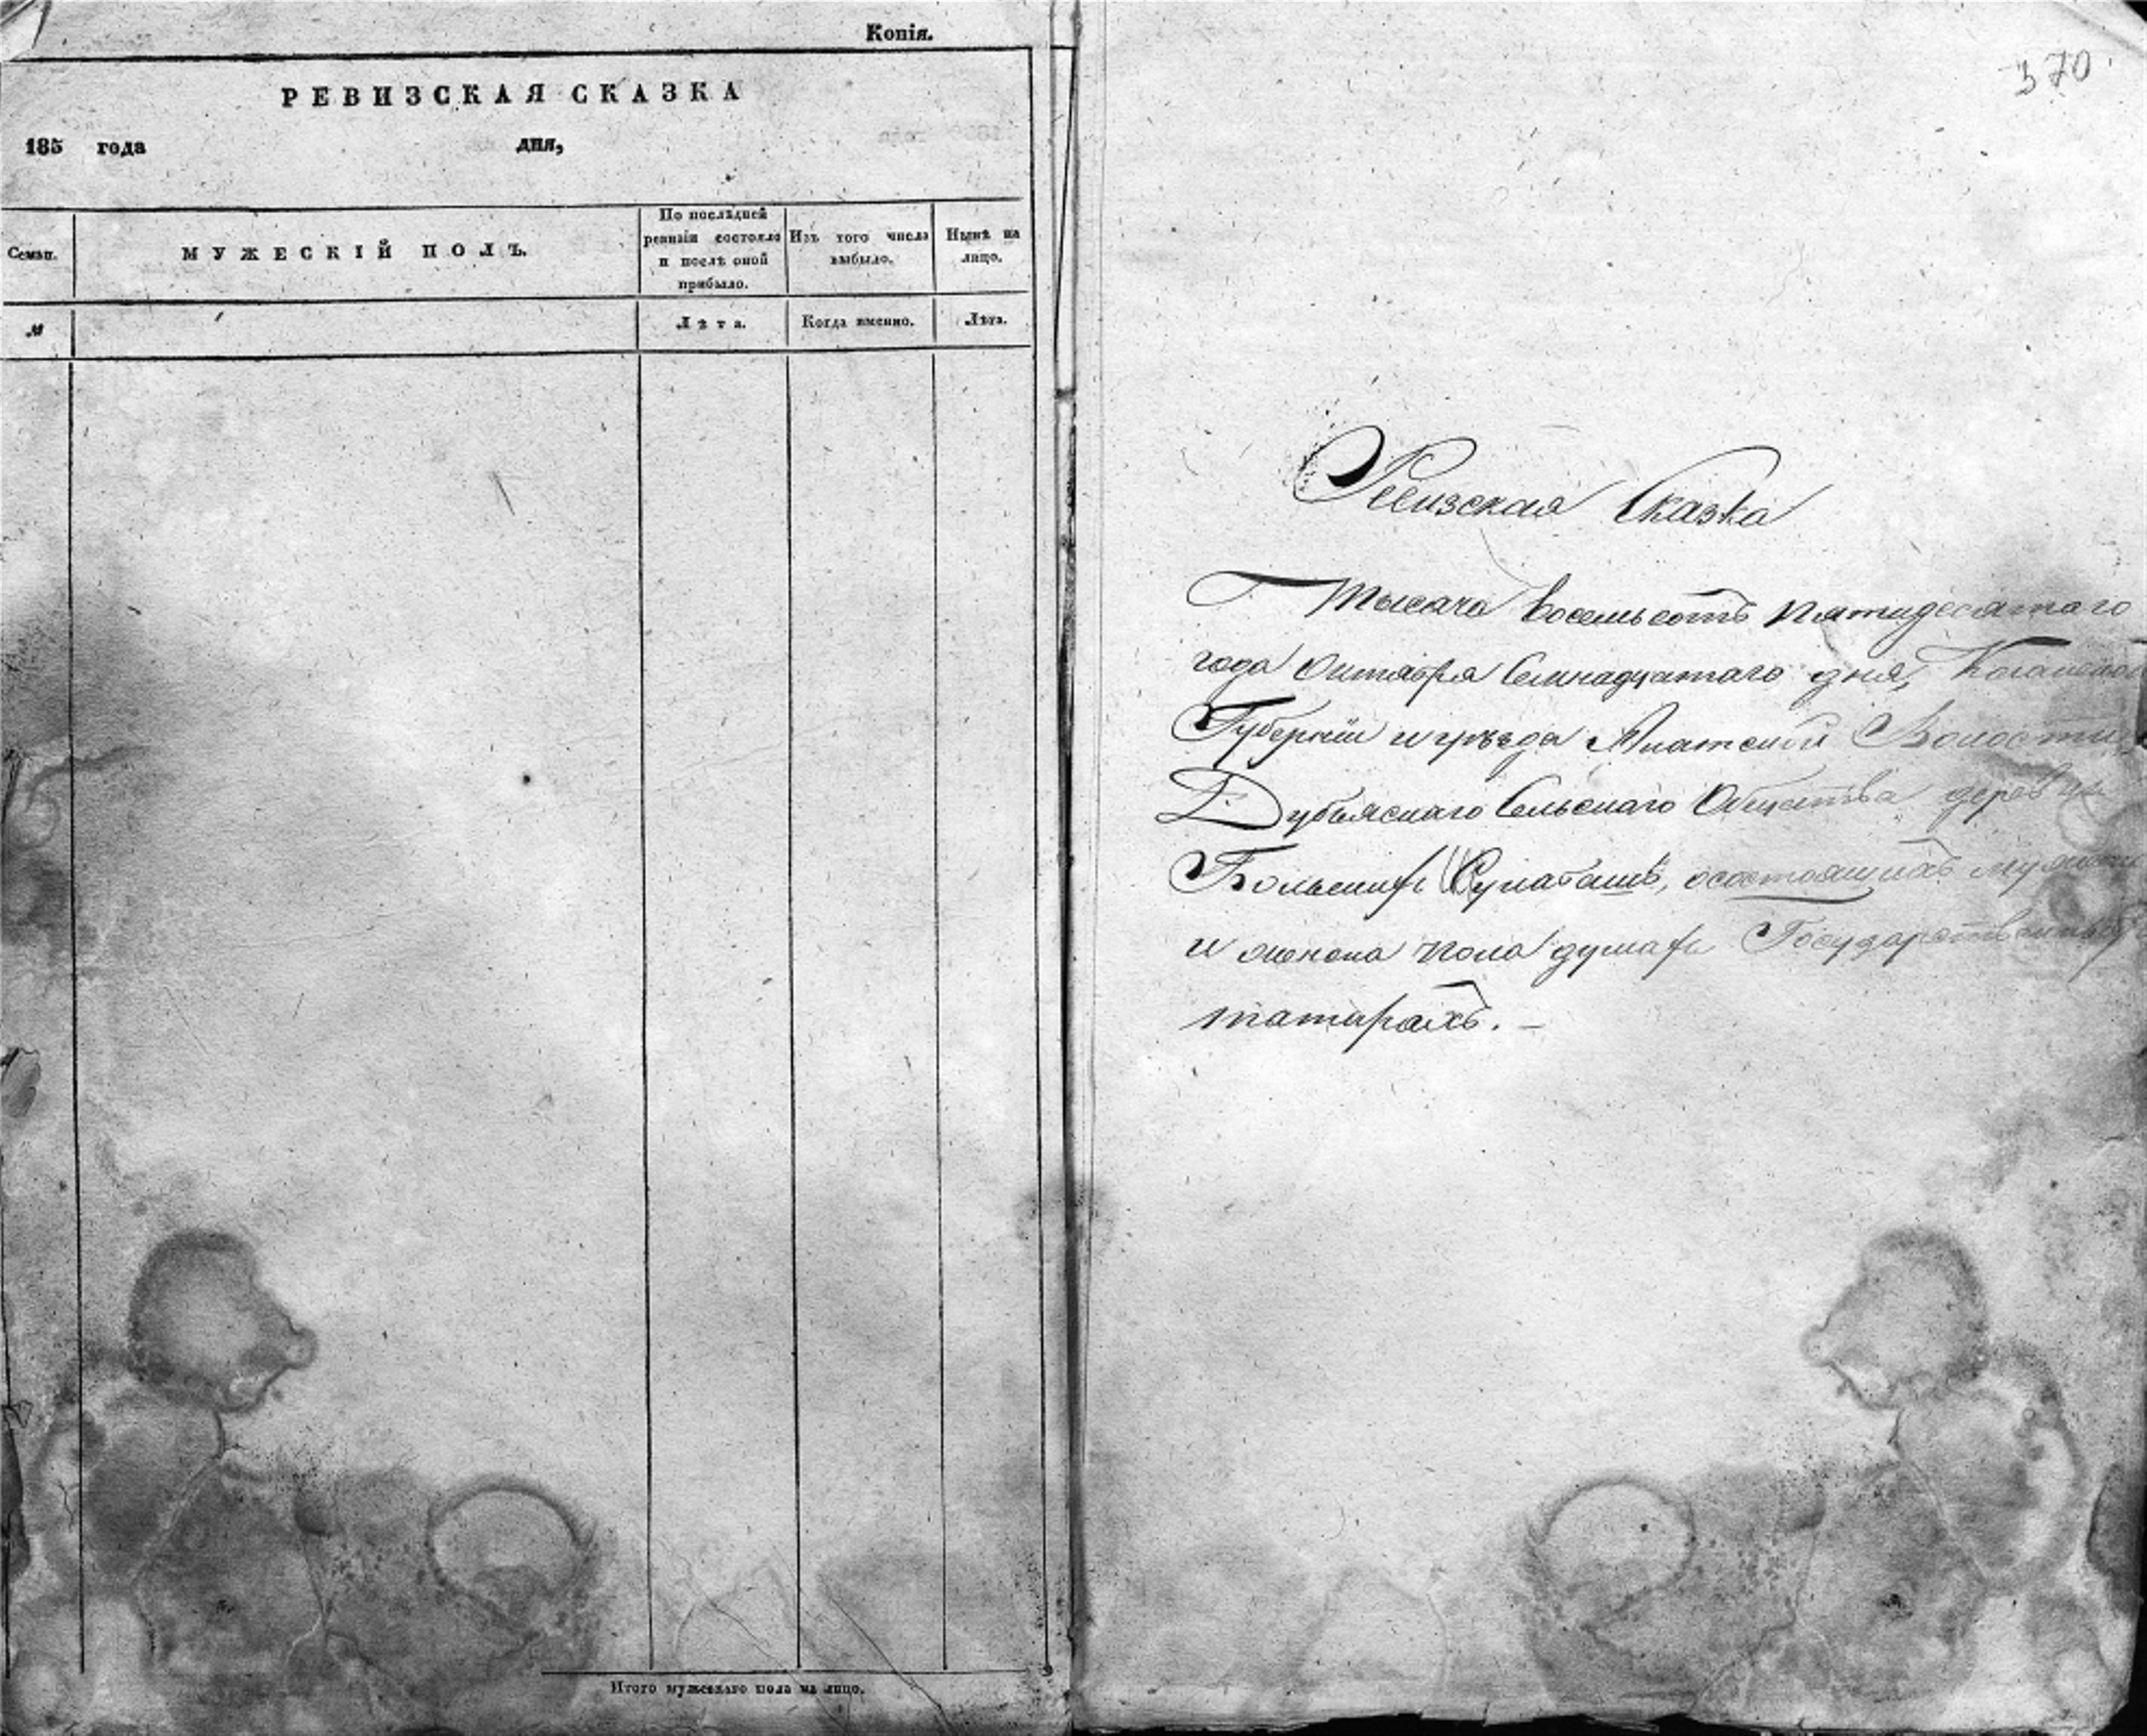 Копія.
РЕВИЗСКАЯ СКАЗКА
185 года дня,
Семьи.
МУЖЕСКІЙ ПОЛЪ.
По послѣдней
ревизіи состояло
и послѣ оной
прибыло.
Изъ того числа
выбыло.
Нынѣ на
лицо.
№
Лѣта.
Когда именно.
Лѣта.
Итого мужескаго пола на лицо.
370
Ревизская Сказка
Тысяча восемьсотъ пятидесятаго
года Октября Семнадцатаго дня, Казанской
Губерніи и уѣзда Мнатской Волости
Дубъяскаго Сельскаго Общества деревни
Большихъ осостоящихъ мужеска
и женска пола душахъ Государственныхъ
татарахъ.